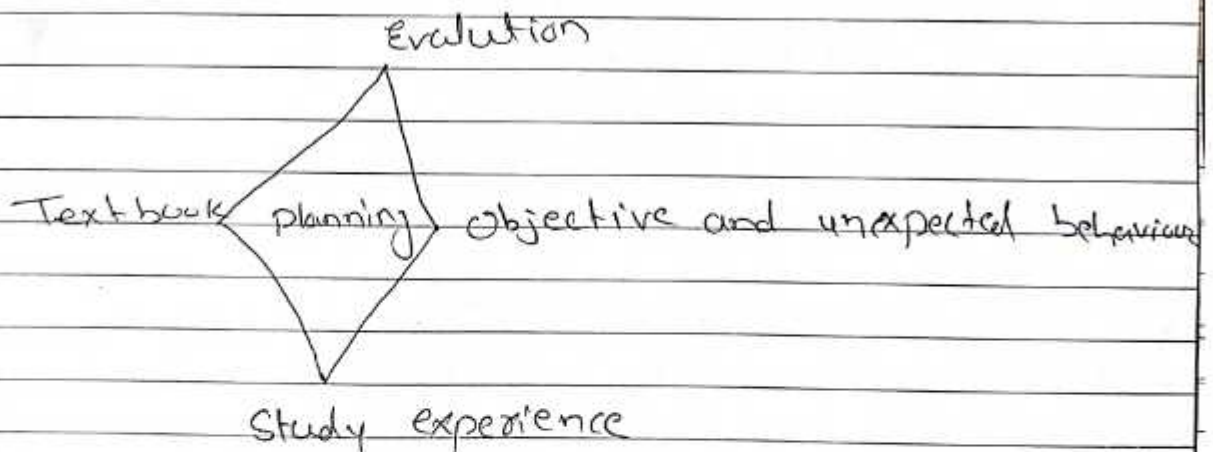 Evalution
Textbook planning Objective and unexpected behaviour
Study experience